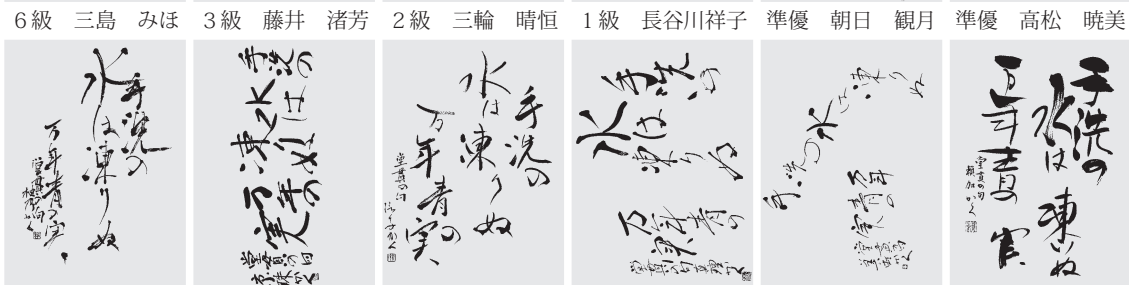 6級 三島 みほ
3級 藤井 渚芳
2級 三輪 晴恒
1級 長谷川祥子
準優 朝日 観月
準優 高松 暁美
手洗の
水は凍りぬ
万年青の実
手洗の
水は凍りぬ
万年青の実
手洗の
水は凍りぬ
万年青の実
手洗の
水は凍りぬ
万年青の実
手洗の水は凍りぬ
万年青の実
手洗の
水は凍りぬ
万年青の実